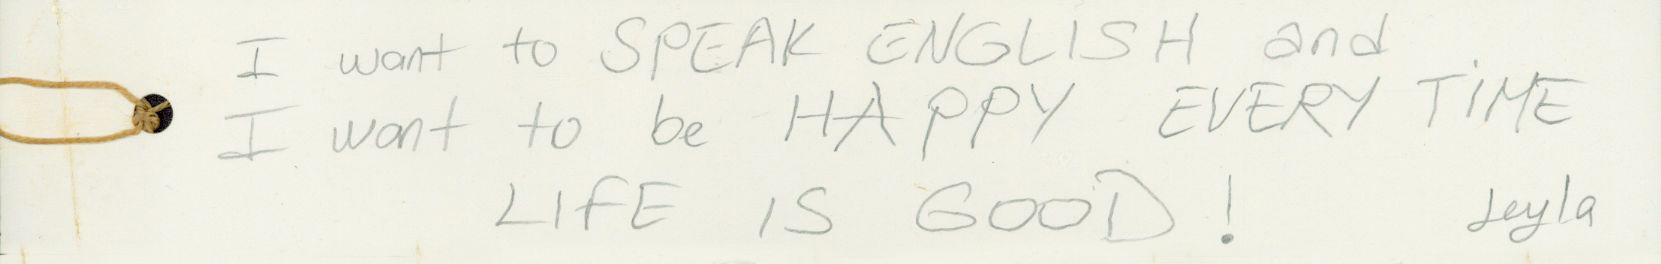 I want to SPEAK ENGLISH and
I want to be HAPPY EVERY TIME
LIFE IS GOOD!
Leyla